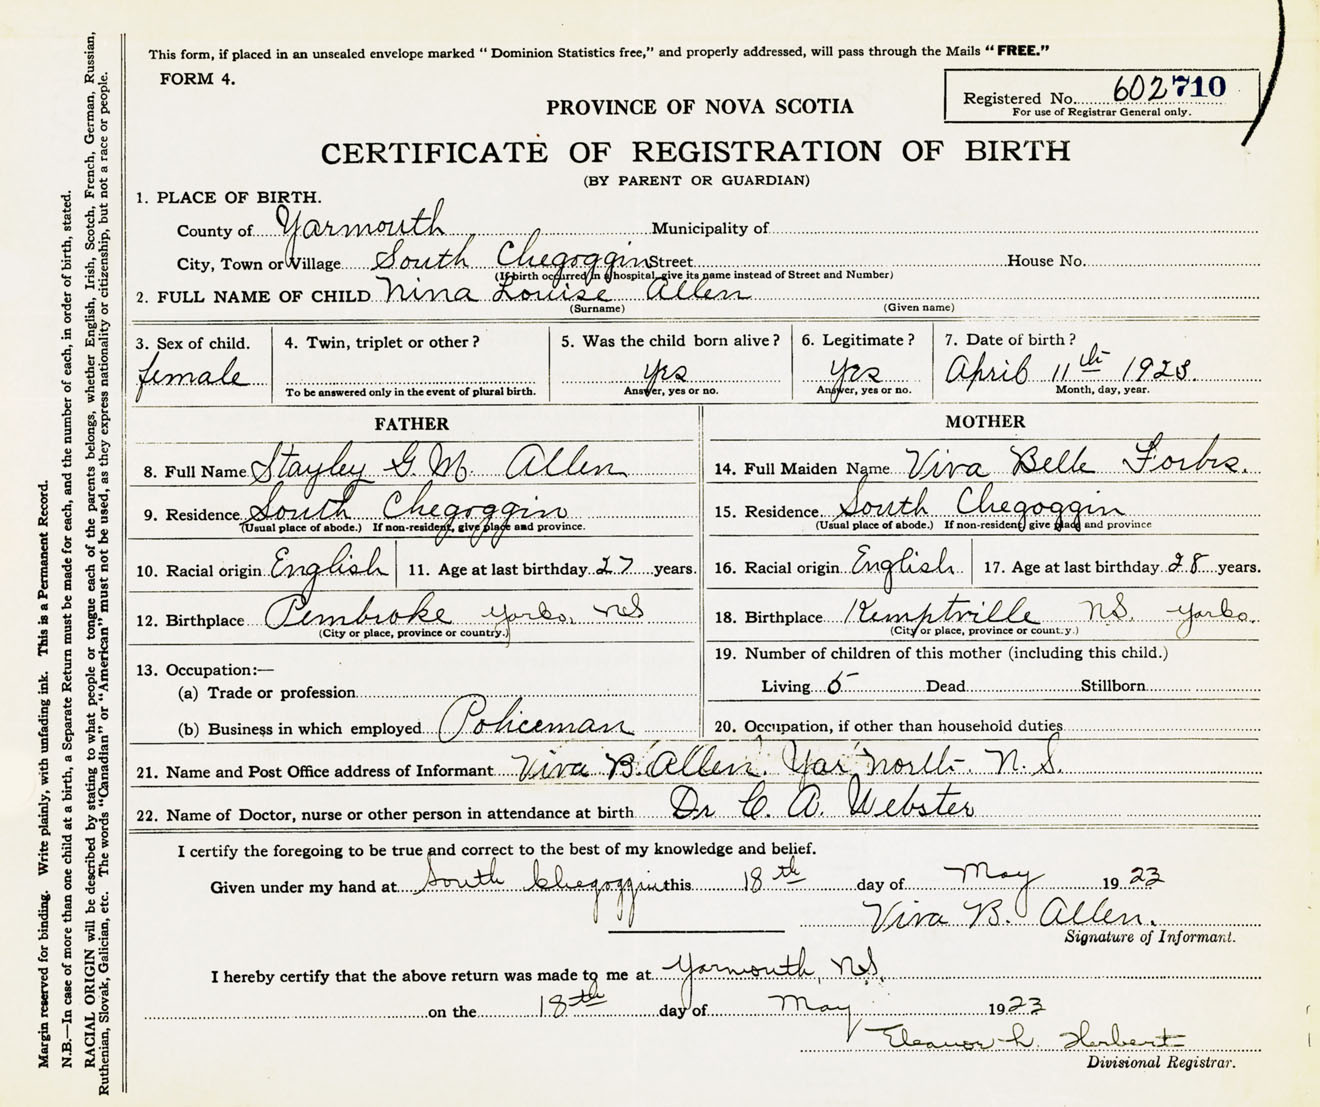 This form, if placed in an unsealed envelope marked “ Dominion Statistics free,” and properly addressed, will pass through the Mails “ FREE.”
FORM 4.
Registered No. 602710
For use of Registrar General only.
PROVINCE OF NOVA SCOTIA
CERTIFICATE OF REGISTRATION OF BIRTH
(BY PARENT OR GUARDIAN)
1. PLACE OF BIRTH.
County of Yarmouth Municipality of
City, Town or Village South Chegoggin Street House No.
(If birth occurred in a hospital, give its name instead of Street and Number)
2. FULL NAME OF CHILD Nina Louise Allen
(Surname) (Given name)
3. Sex of child. 4. Twin, triplet or other? 5. Was the child born alive? 6. Legitimate? 7. Date of birth?
female Yes Yes April 11th 1923.
To be answered only in the event of plural birth. Answer, yes or no. Answer, yes or no. Month, day, year.
FATHER
8. Full Name Stayley G. M. Allen
9. Residence South Chegoggin
(Usual place of abode.) If non-resident, give place and province.
10. Racial origin English 11. Age at last birthday 27 years.
12. Birthplace Pembroke Yarko, NS
(City or place, province or country.)
13. Occupation:—
(a) Trade or profession
(b) Business in which employed Policeman
MOTHER
14. Full Maiden Name Viva Belle Forbs.
15. Residence South Chegoggin
(Usual place of abode.) If non-resident give place and province
16. Racial origin English 17. Age at last birthday 28 years.
18. Birthplace Kemptville NS. Yarko.
(City or place, province or country.)
19. Number of children of this mother (including this child.)
Living 5 Dead Stillborn
20. Occupation, if other than household duties
21. Name and Post Office address of Informant Viva B. Allen. Yar North. N. S.
22. Name of Doctor, nurse or other person in attendance at birth Dr C. A. Webster
I certify the foregoing to be true and correct to the best of my knowledge and belief.
Given under my hand at South Chegoggin this 18th day of May 1923
Viva B. Allen.
Signature of Informant.
I hereby certify that the above return was made to me at Yarmouth, N.S.
on the 18th day of May 1923
Eleanor L. Herbert
Divisional Registrar.
Margin reserved for binding. Write plainly, with unfading ink. This is a Permanent Record.
N.B.—In case of more than one child at a birth, a Separate Return must be made for each, and the number of each, in order of birth, stated.
RACIAL ORIGIN will be described by stating to what people or tongue each of the parents belongs, whether English, Irish, Scotch, French, German, Russian,
Ruthenian, Slovak, Galician, etc. The words “Canadian” or “American” must not be used, as they express nationality or citizenship, but not a race or people.